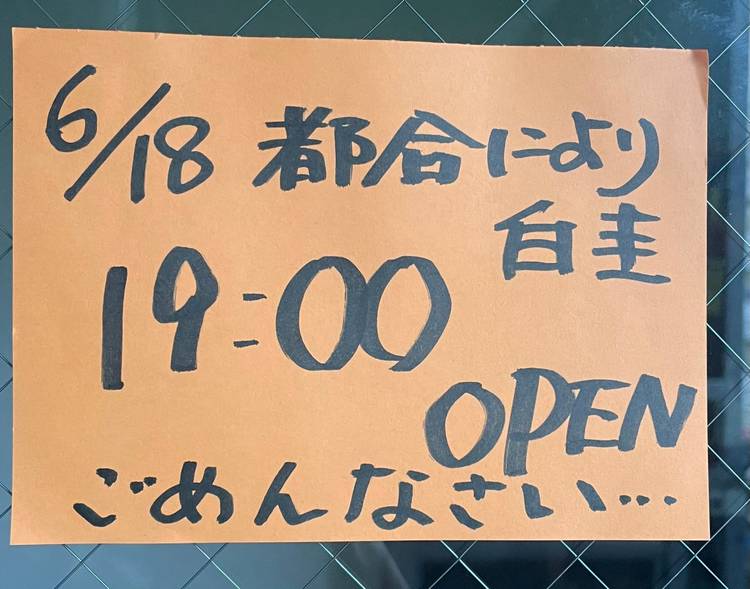 6/18 都合により
白圭
19:00
OPEN
ごめんなさい…